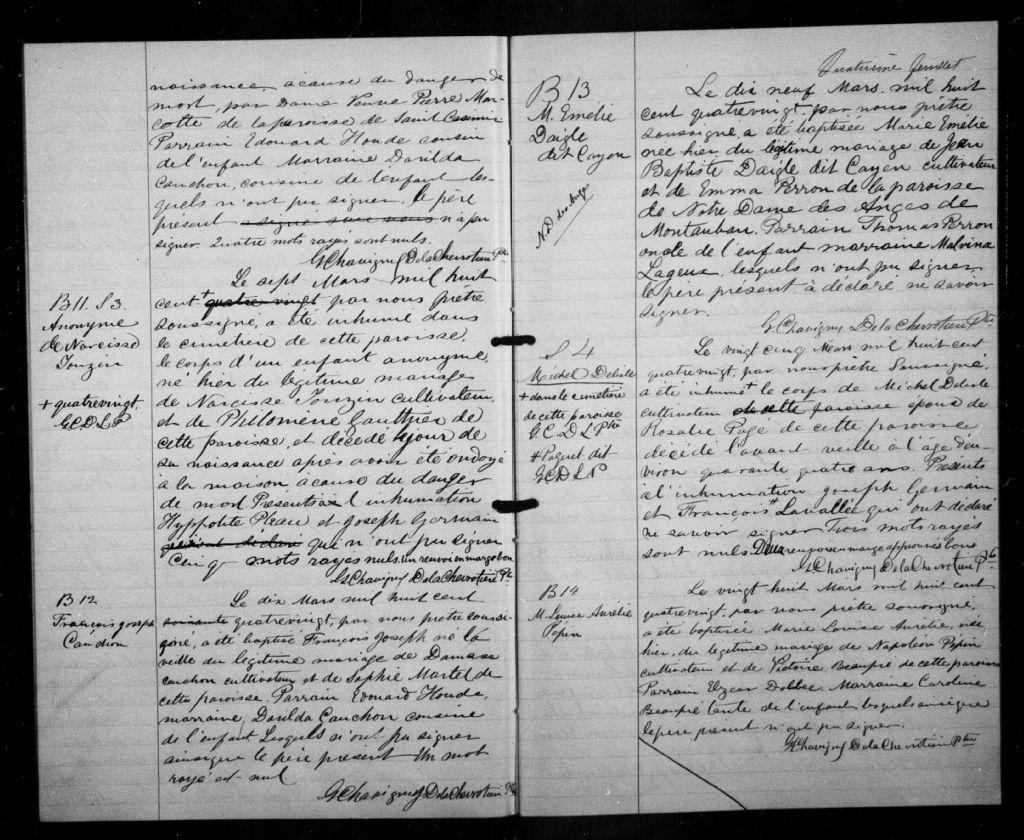 naissance, acause du danger de
mort, par Dame Veuve Pierre Mar-
cotte de la paroisse de Saint Casimir
Parrain Edouard Houde cousin
de l'enfant Marraine Davilda
Cauchon, cousine de l'enfant les-
quels n'ont pu signer. le père
présent n'a pu
signer. Quatre mots rayés sont nuls.
G Chavigny DelaChevrotière Ptre
B 11. S 3.
Anonyme
de Narcisse
Touzin
+ quatrevingt
G.C.D.L.P
Le sept Mars mil huit
cent + quatre vingt par nous prêtre
soussigné, a été inhumé dans
le cimetière de cette paroisse,
le corps d'un enfant anonyme,
né hier du légitime mariage
de Narcisse Touzin cultivateur
et de Philomène Gauthier de
cette paroisse, et décédé le jour de
sa naissance après avoir été ondoyé
a la maison acause du danger
de mort. Présents à l'inhumation
Hyppolite Pleau et Joseph Germain
qui n'ont pu signer
Cinq mots rayés nuls. Un renvoi en marge bon
G Chavigny DelaChevrotière Ptre
B 12
François Joseph
Cauchon
Le dix Mars mil huit cent
soixante quatrevingt, par nous pretre soussi-
gné, a été baptisé François Joseph né la
veille du légitime mariage de Damase
Cauchon cultivateur et de Sophie Martel de
cette paroisse. Parrain Edouard Houde,
marraine, Davilda Cauchon cousine
de l'enfant Lesquels n'ont pu signer
ainsique le père présent Un mot
rayé est nul
G Chavigny DelaChevrotière Ptre
Quatrième feuillet
B 13
M. Emélie
Daigle
dit Cayen
N.D. des Anges
Le dix neuf Mars, mil huit
cent quatrevingt, par nous prêtre
soussigné, a été baptisée Marie Emélie
née hier, du légitime mariage de Jean
Baptiste Daigle dit Cayen cultivateur
et de Emma Perron de la paroisse
de Notre Dame des Anges de
Montauban. Parrain Thomas Perron
oncle de l'enfant marraine Malvina
Lageux, lesquels n'ont pu signer
le père présent à déclaré ne savoir
signer.
G Chavigny DelaChevrotière Ptre
S 4
Michel Delisle
+ dans le cimetière
de cette paroisse
G C D L Ptre
+ Paquet dit
G.C.D.L.P
Le vingt cinq Mars mil huit cent
quatrevingt, par nous prêtre Soussigné,
a été inhumé + le corps de Michel Delisle
cultivateur paroisse époux de
Rosalie Pagé de cette paroisse
décédé l'avant veille à l'âge d'en-
viron quarante quatre ans. Présents
à l'inhumation Joseph Germain
et François + Lavallée qui ont déclaré
ne savoir signer Trois mots rayés
sont nuls. Deux renvois en marge approuvés bons
G Chavigny DelaChevrotière Ptre
B 14
M. Louise Aurélie
Pepin
Le vingt huit Mars mil huit cent
quatrevingt, par nous pretre soussigné,
a été baptisée Marie Louise Aurélie, née
hier, du légitime mariage de Napoléon Pépin
cultivateur et de Victoire Beaupré de cette paroisse
Parrain Elzear Dolbec. Marraine Caroline
Beaupré tante de l'enfant, lesquels ainsique
le père présent n'ont pu signer.
G Chavigny DelaChevrotière Ptre